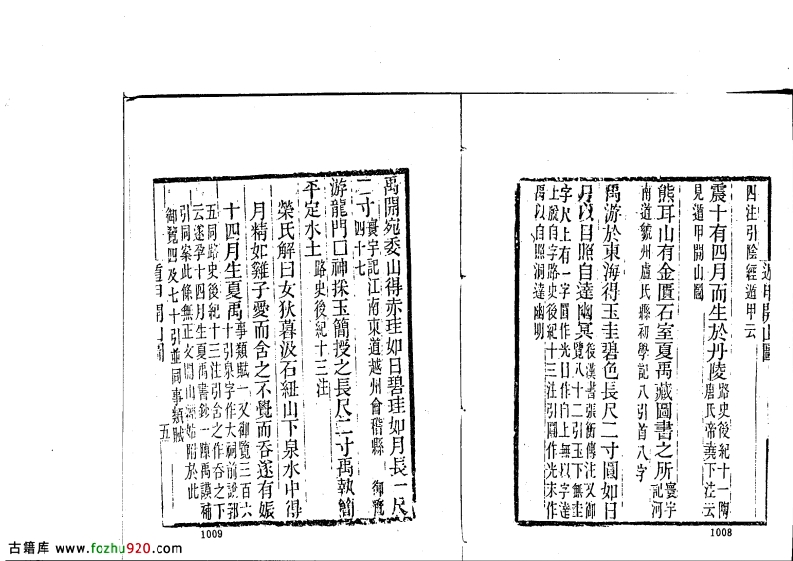 遁甲開山圖
四注引陰經遁甲云
震十有四月而生於丹陵路史後紀十一陶
唐氏帝堯下注云
見遁甲開山圖
熊耳山有金匱石室夏禹藏圖書之所寰宇
記河
南道虢州盧氏縣初學記八引首八字
禹游於東海得玉圭碧色長尺二寸圓如日
月以日照自達幽冥後漢書張衡傳注又御
覽八十二引玉下無圭
字尺上有一字圓作光日作白上無以字達
上設自字路史後紀十三注引圓作光末作
禹以自照洞達幽明
1008
禹開宛委山得赤珪如日碧珪如月長一尺
二寸寰宇記江南東道越州會稽縣 御覽
四十七
游龍門口神採玉簡授之長尺二寸禹執簡
平定水土路史後紀十三注
榮氏解曰女狄暮汲石紐山下泉水中得
月精如雞子愛而含之不覺而吞遂有娠
十四月生夏禹事類賦一又御覽三百六
十引泉字作大祠前說郛
五同路史後紀十三注引含之作吞之下
云遂孕十四月生夏禹書鈔一障禹謨補
引同案此條無正文開山姑附於此
御覽四及七十引並同事類賦
遁甲開山圖
五
1009
古籍库 www.fozhu920.com